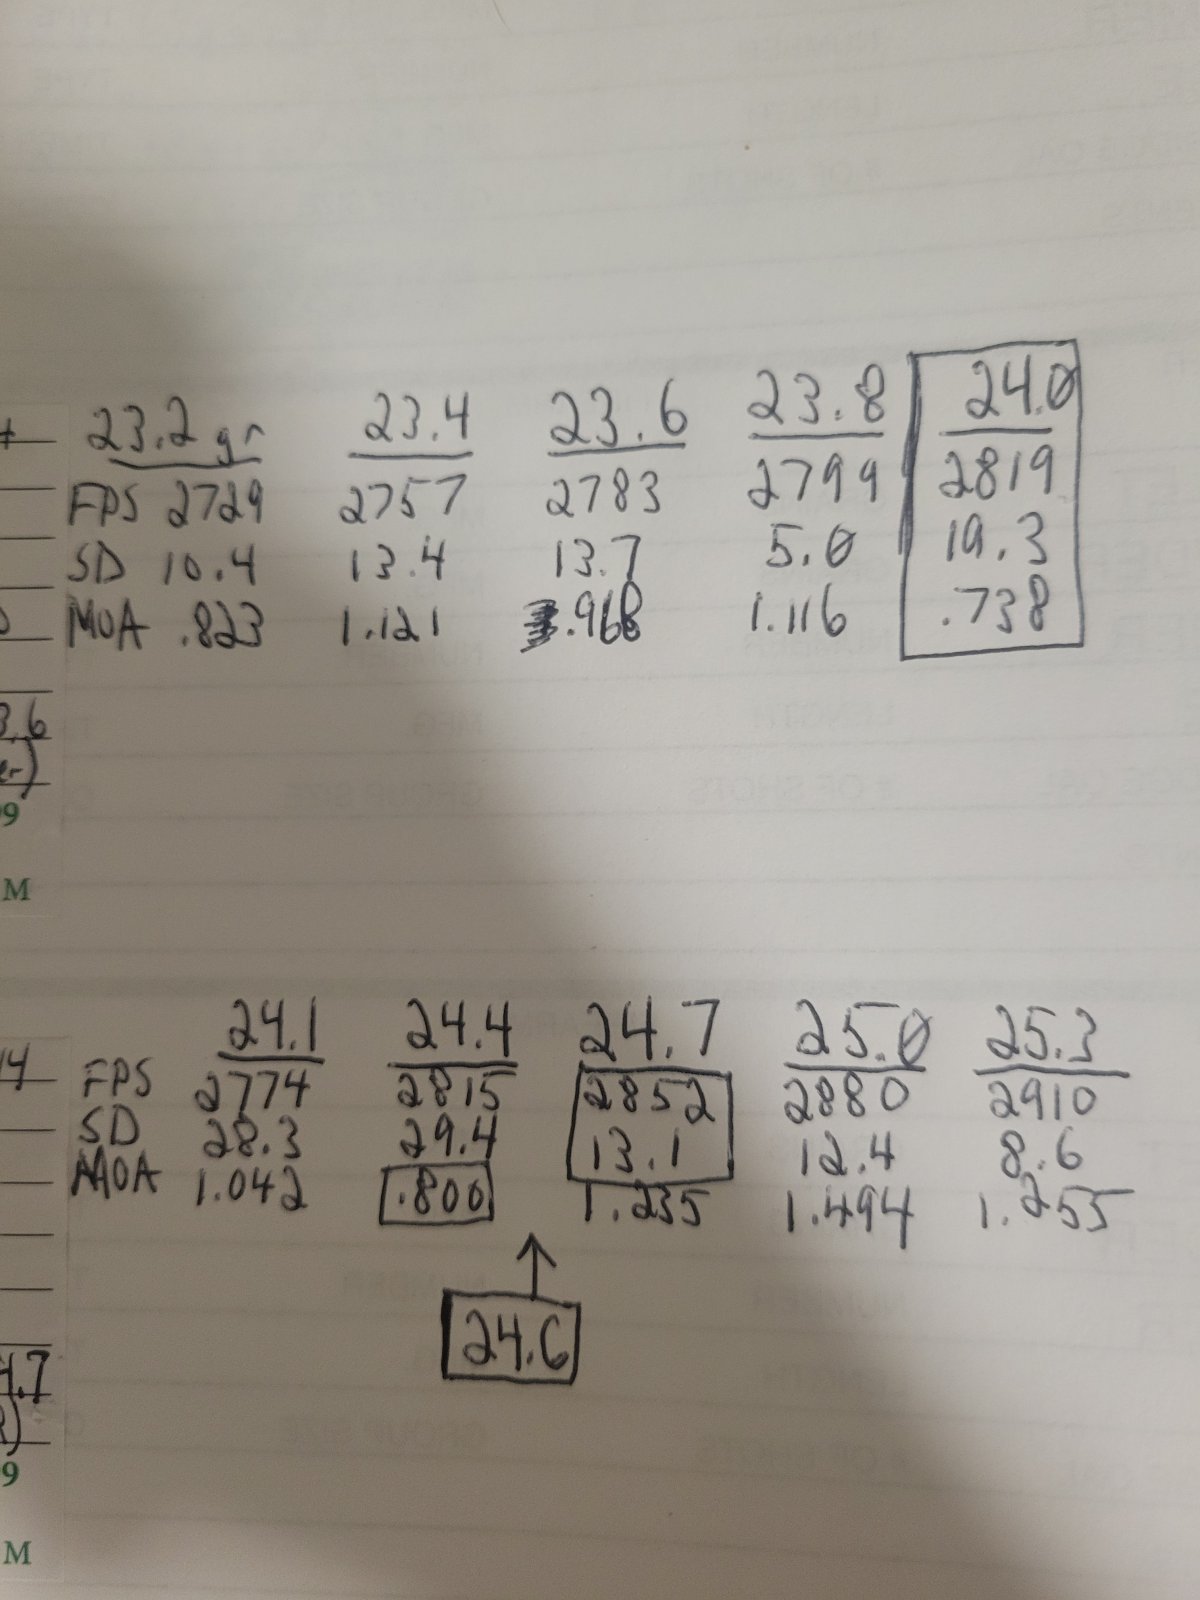 23.2 gr 23.4 23.6 23.8 24.0
FPS 2729 2757 2783 2799 2819
SD 10.4 13.4 13.7 5.0 19.3
MOA .823 1.121 .968 1.116 .738
3.6
9
M
24.1 24.4 24.7 25.0 25.3
FPS 2774 2815 2852 2880 2910
SD 28.3 29.4 13.1 12.4 8.6
MOA 1.042 .800 1.235 1.494 1.255
24.6
4.7
9
M